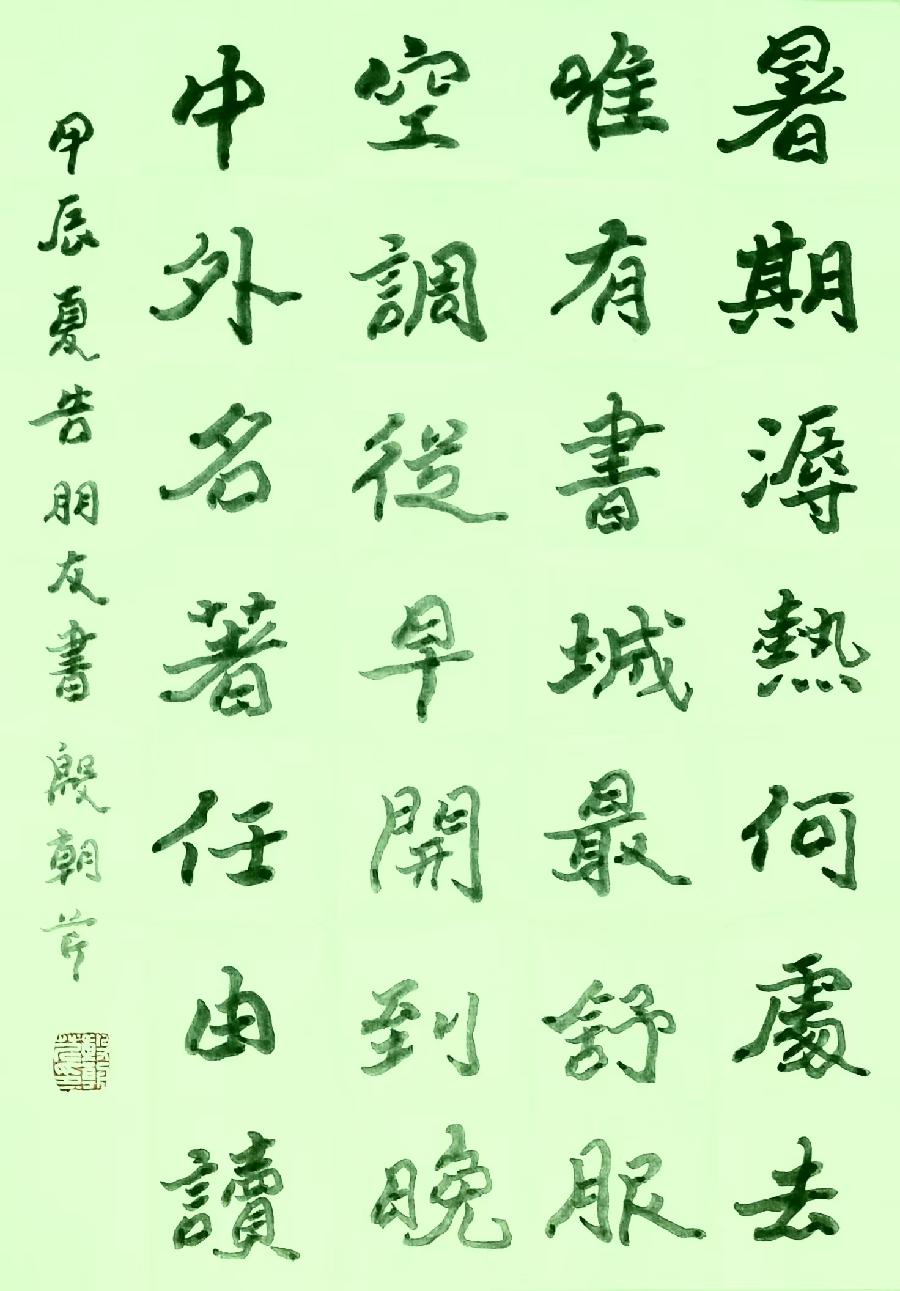 暑期溽熱何處去
唯有書城最舒服
空調從早開到晚
中外名著任由讀
甲辰夏告朋友書 殷朝芹